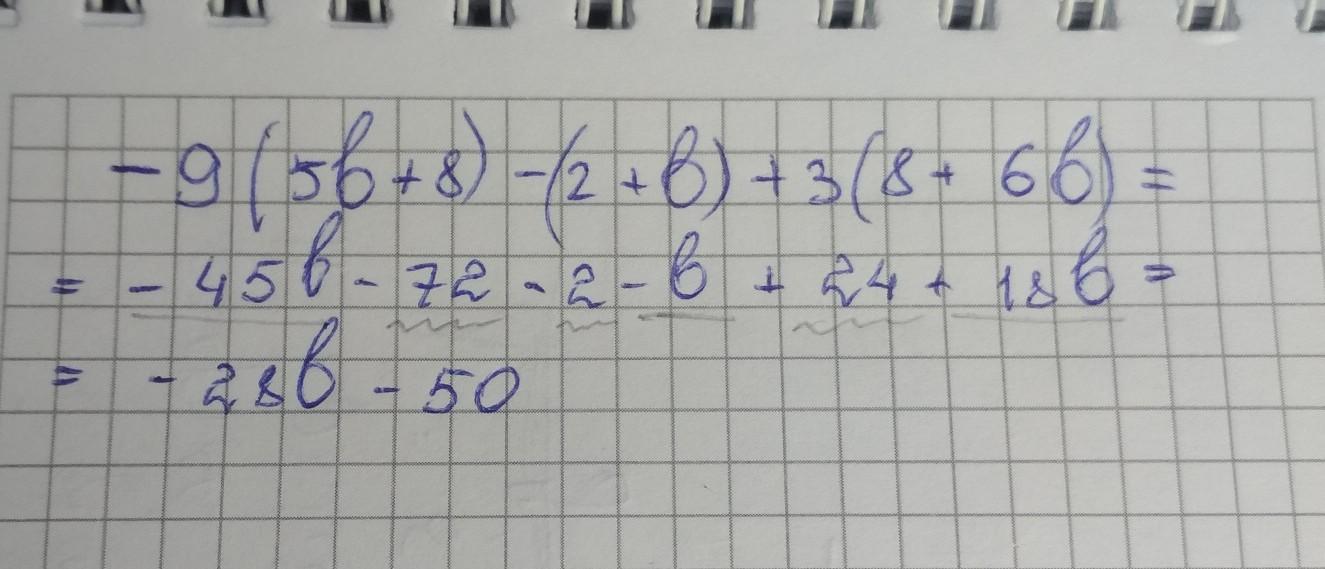 - 9 (5b + 8) - (2 + b) + 3 (8 + 6b) =
= - 45b - 72 - 2 - b + 24 + 18b =
= - 28b - 50